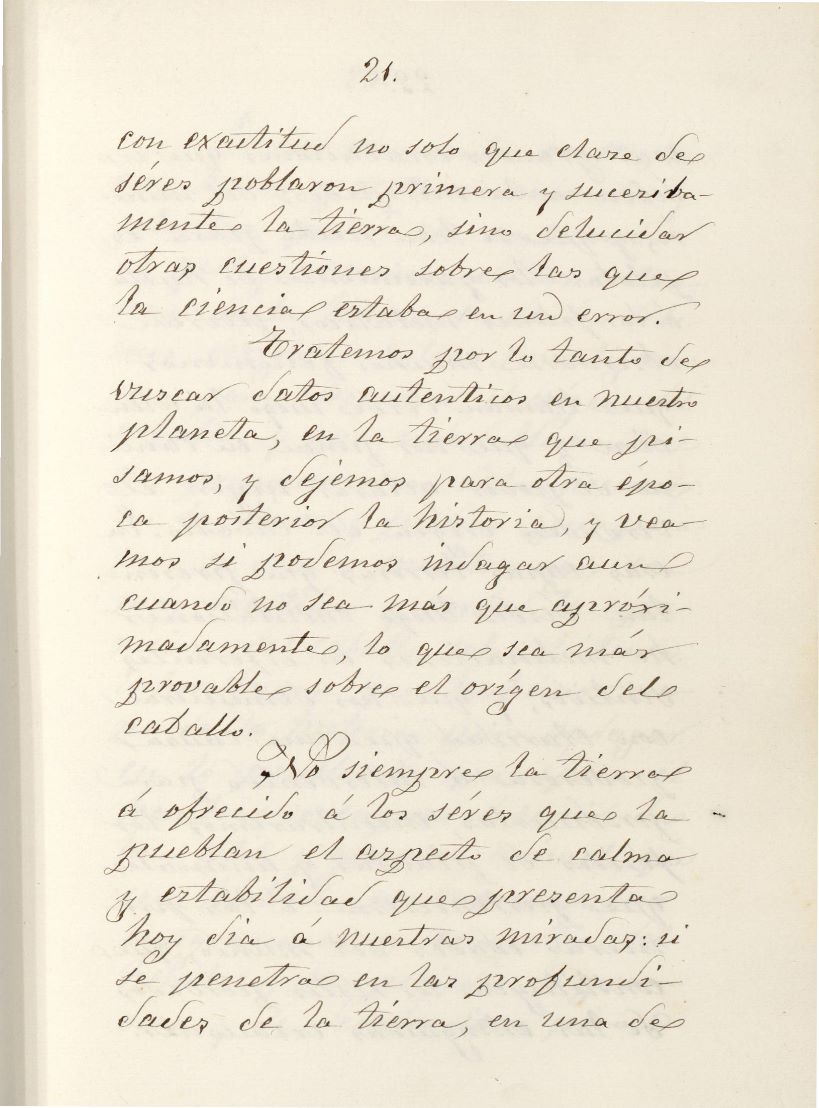 21.
con exactitud no solo que clase de
séres poblaron primera y sucesiva-
mente la tierra, sino delucidar
otras cuestiones sobre las que
la ciencia estaba en un error.
Tratemos por lo tanto de
vuscar datos autenticos en nuestro
planeta, en la tierra que pi-
samos, y dejemos para otra épo-
ca posterior la historia, y vea-
mos si podemos indagar aun
cuando no sea más que apróxi-
madamente, lo que sea más
provable sobre el orígen del
caballo.
No siempre la tierra
á ofrecido á los séres que la
pueblan el aspecto de calma
y estabilidad que presenta
hoy dia á nuestras miradas: si
se penetra en las profundi-
dades de la tierra, en una de